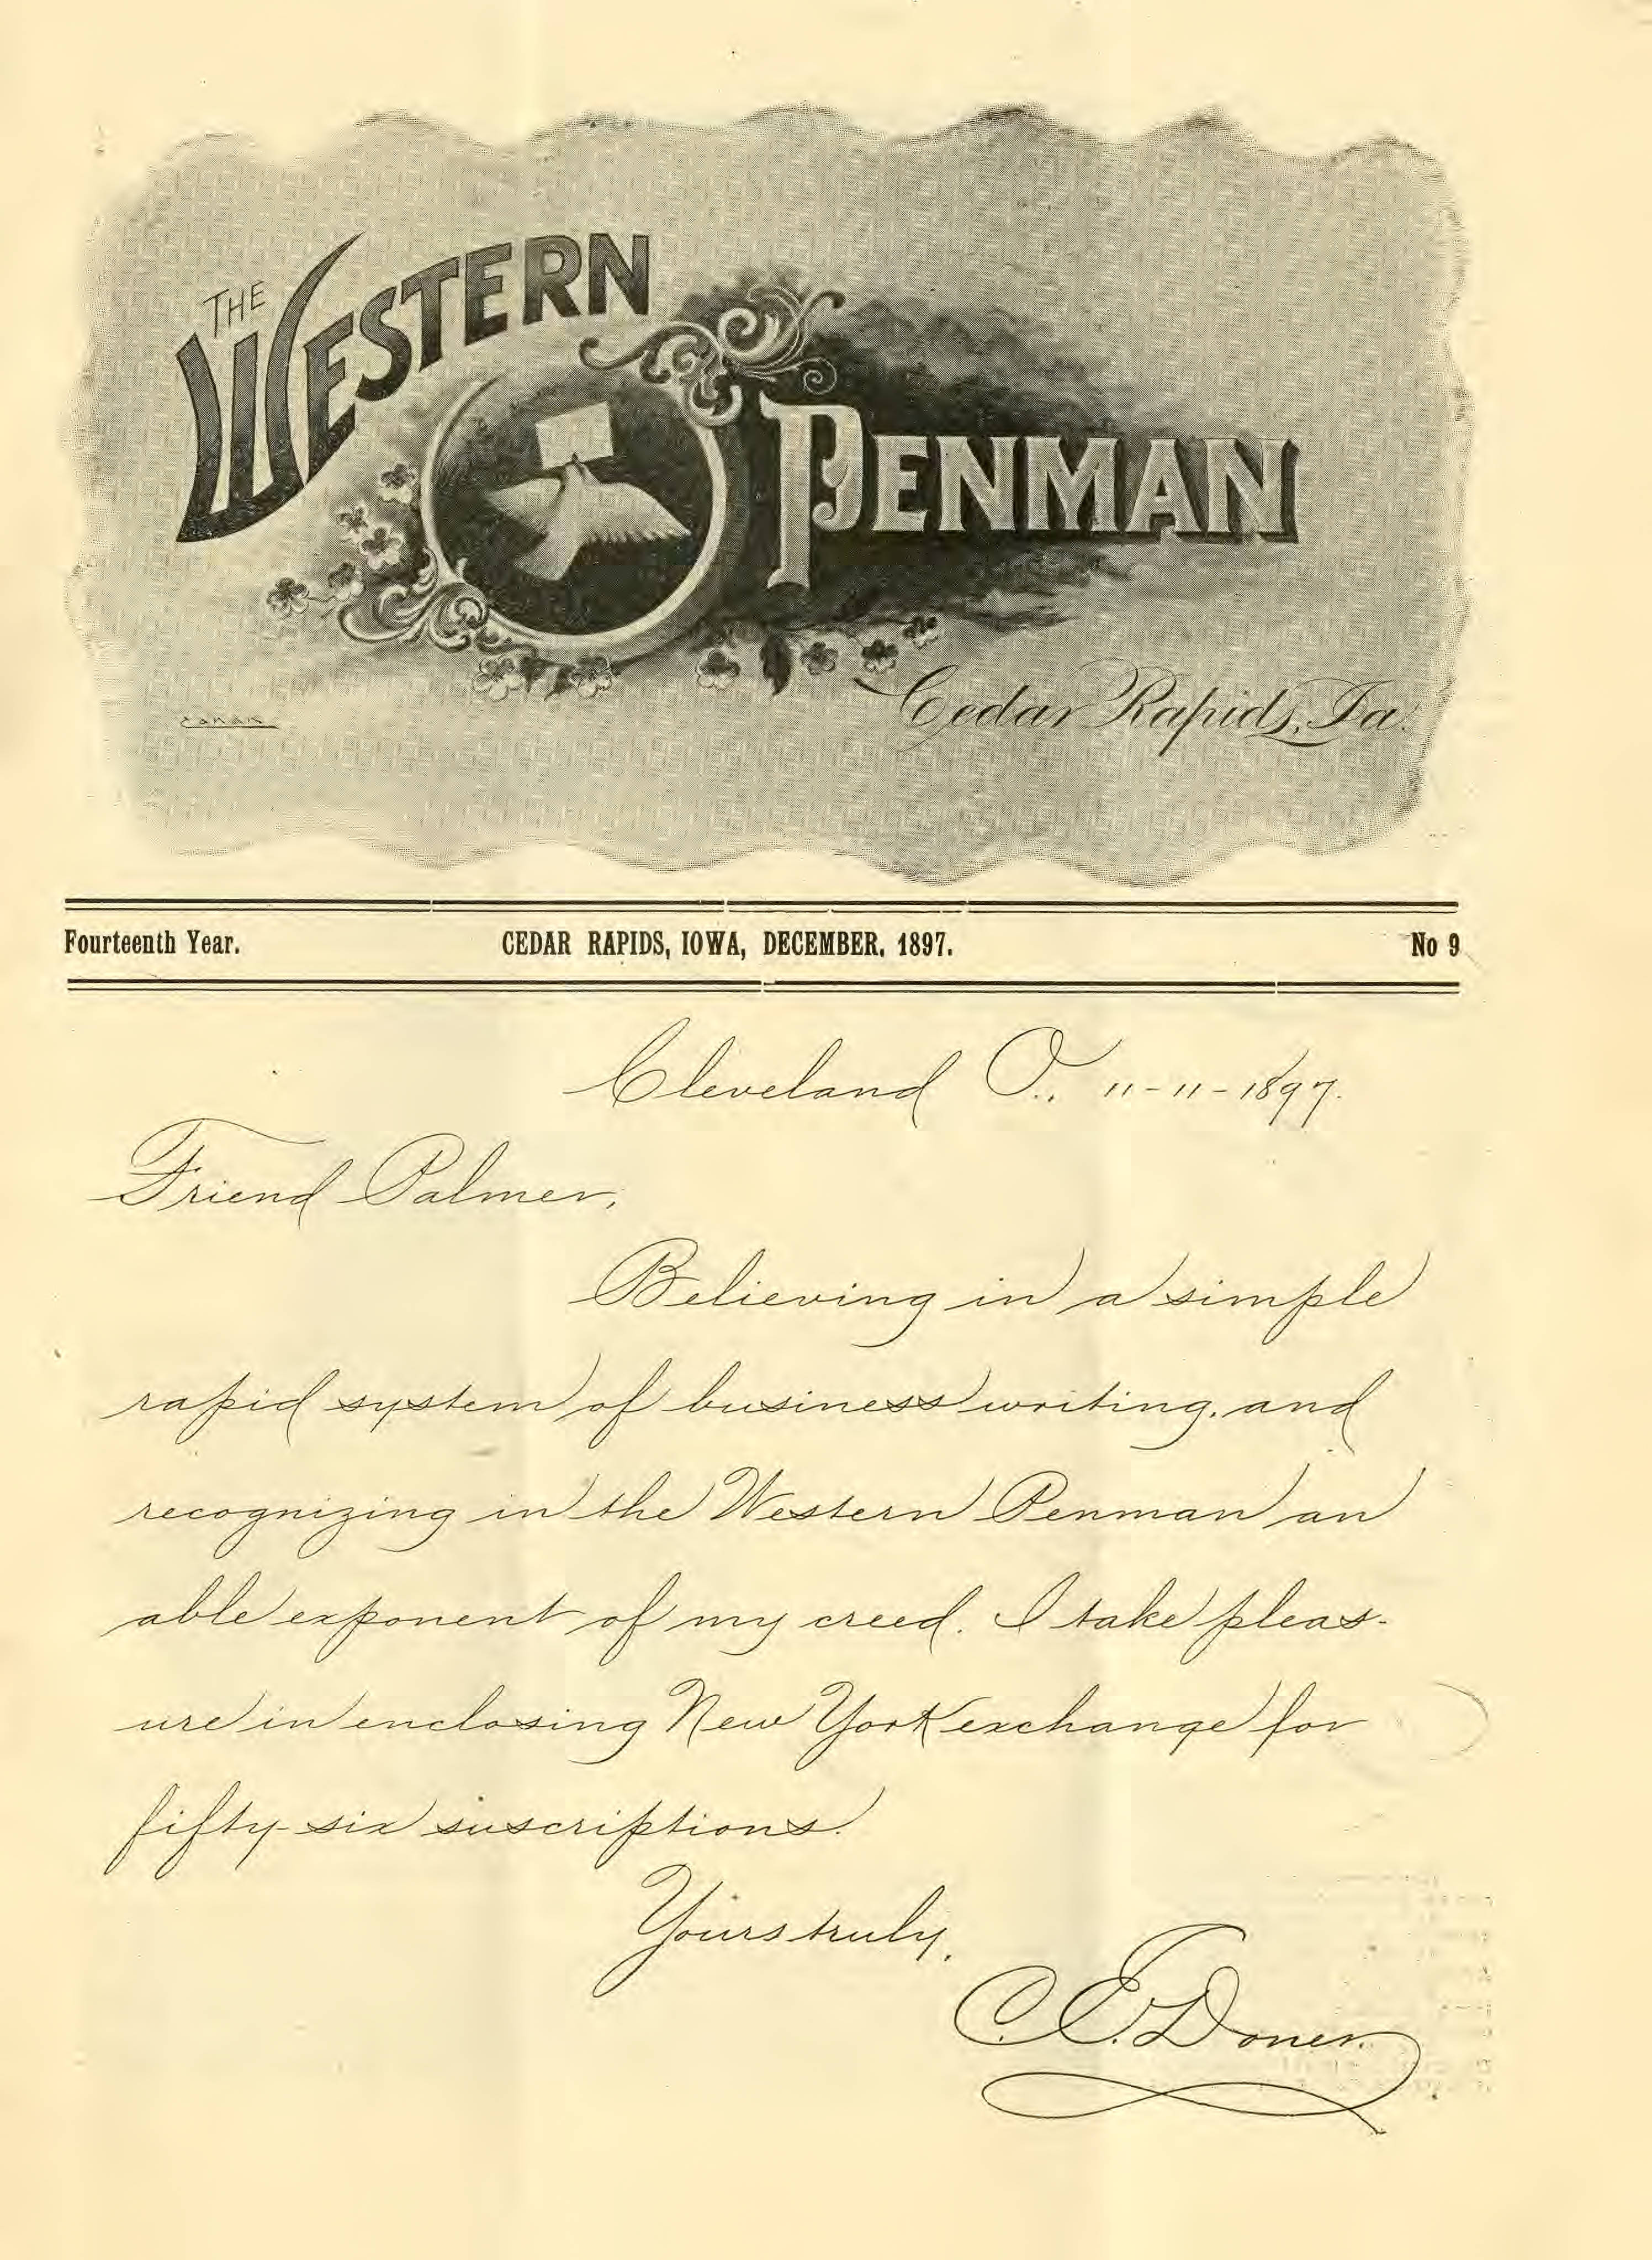 THE
WESTERN
PENMAN
Cedar Rapids, Ia.
Fourteenth Year. CEDAR RAPIDS, IOWA, DECEMBER, 1897. No 9
Cleveland O., 11-11-1897.
Friend Palmer,
Believing in a simple
rapid system of business writing, and
recognizing in the Western Penman an
able exponent of my creed. I take pleas-
ure in enclosing New York exchange for
fifty-six suscriptions.
Yours truly,
C. E. Doner.